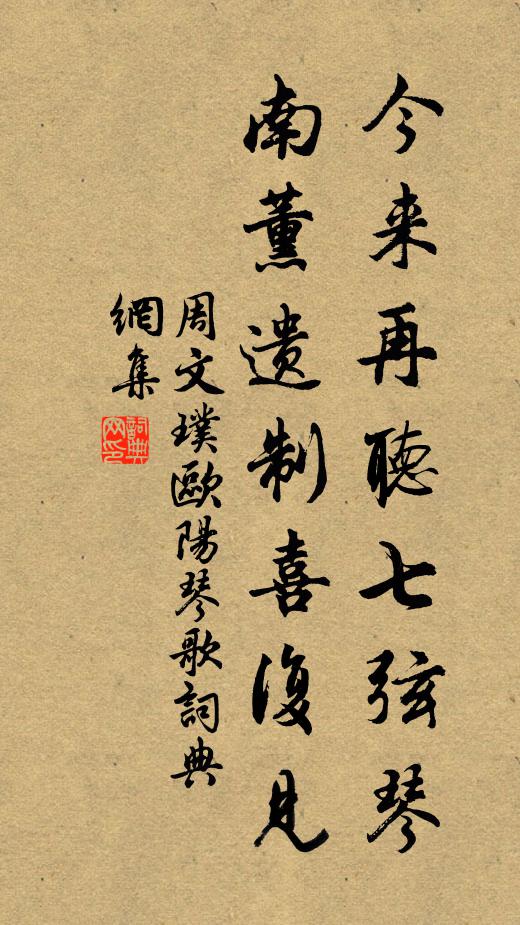 今来再聽七弦琴
南薰遗制喜復見
周文璞歐陽琴歌詞典
網集
詞典
网印